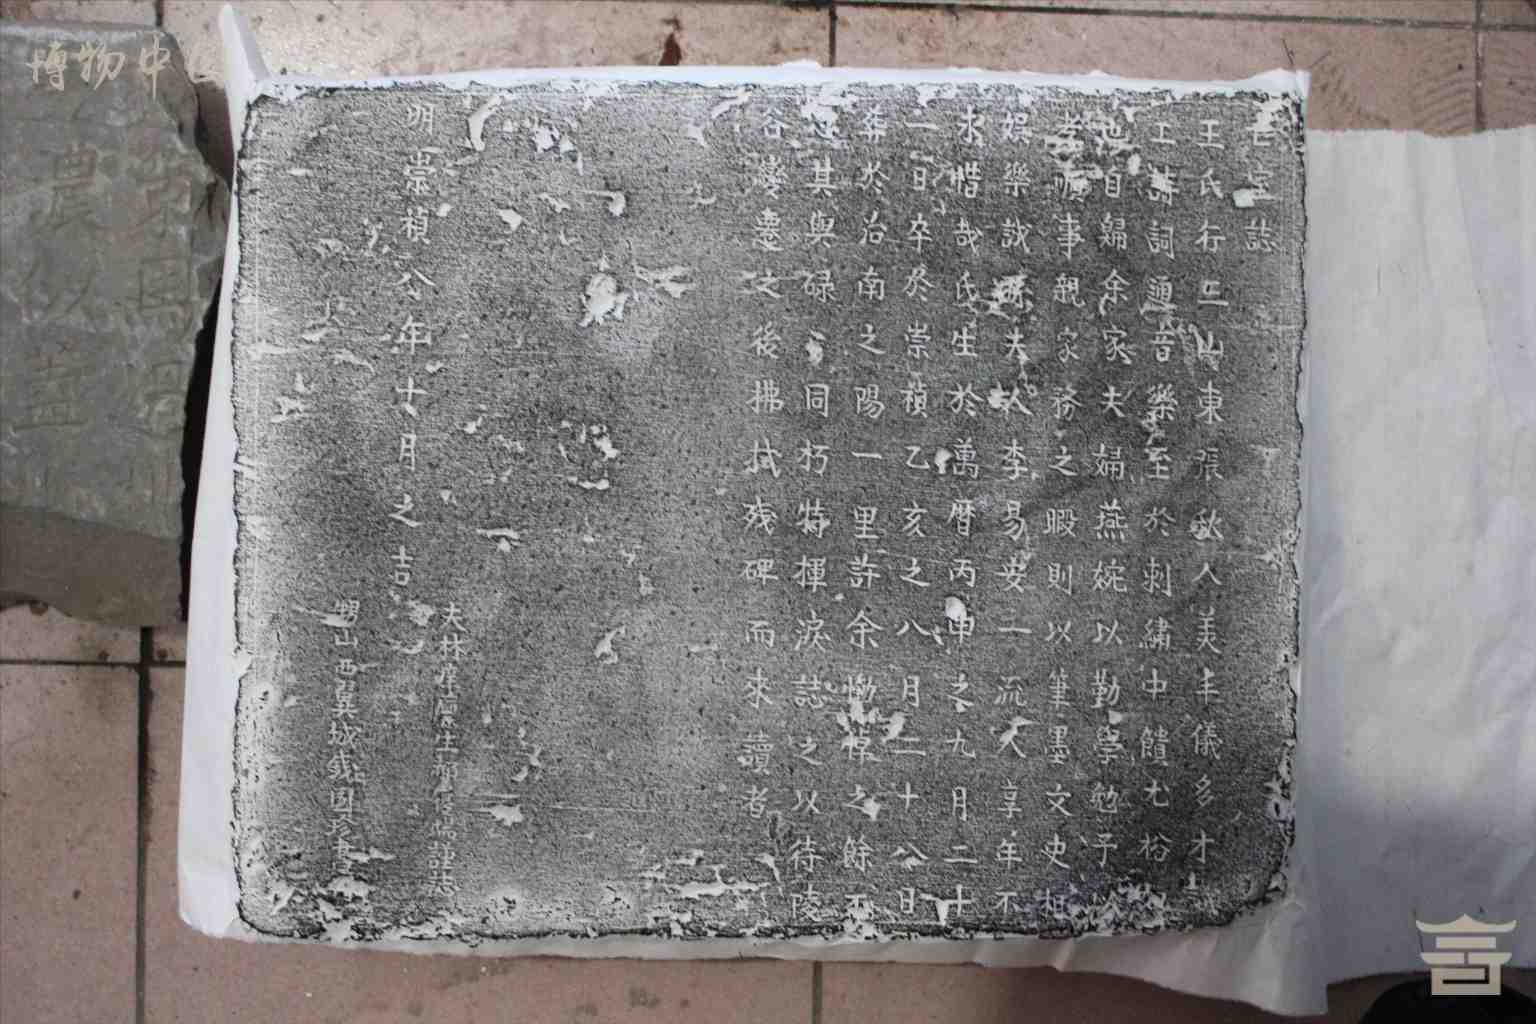 亡室誌
王氏行二山東張秋人美丰儀多才
工詩詞通音樂至於刺繡中饋尤裕
也自歸余家夫婦燕婉以勤學勉予以
孝順事親家務之暇則以筆墨文史相
娛樂誠 夫人李易安一流人享年不
永惜哉氏生於萬曆丙申之九月二十
一日卒於崇禎乙亥之八月二十八日
葬於治南之陽一里許余慟悼之餘不
忍其與碌 同朽特揮淚誌之以待陵
谷變遷之後拂拭殘碑而來讀者
明崇禎八年十月之吉
夫林庠廩生 謹誌
山西 城 國珍書
博物中
農以